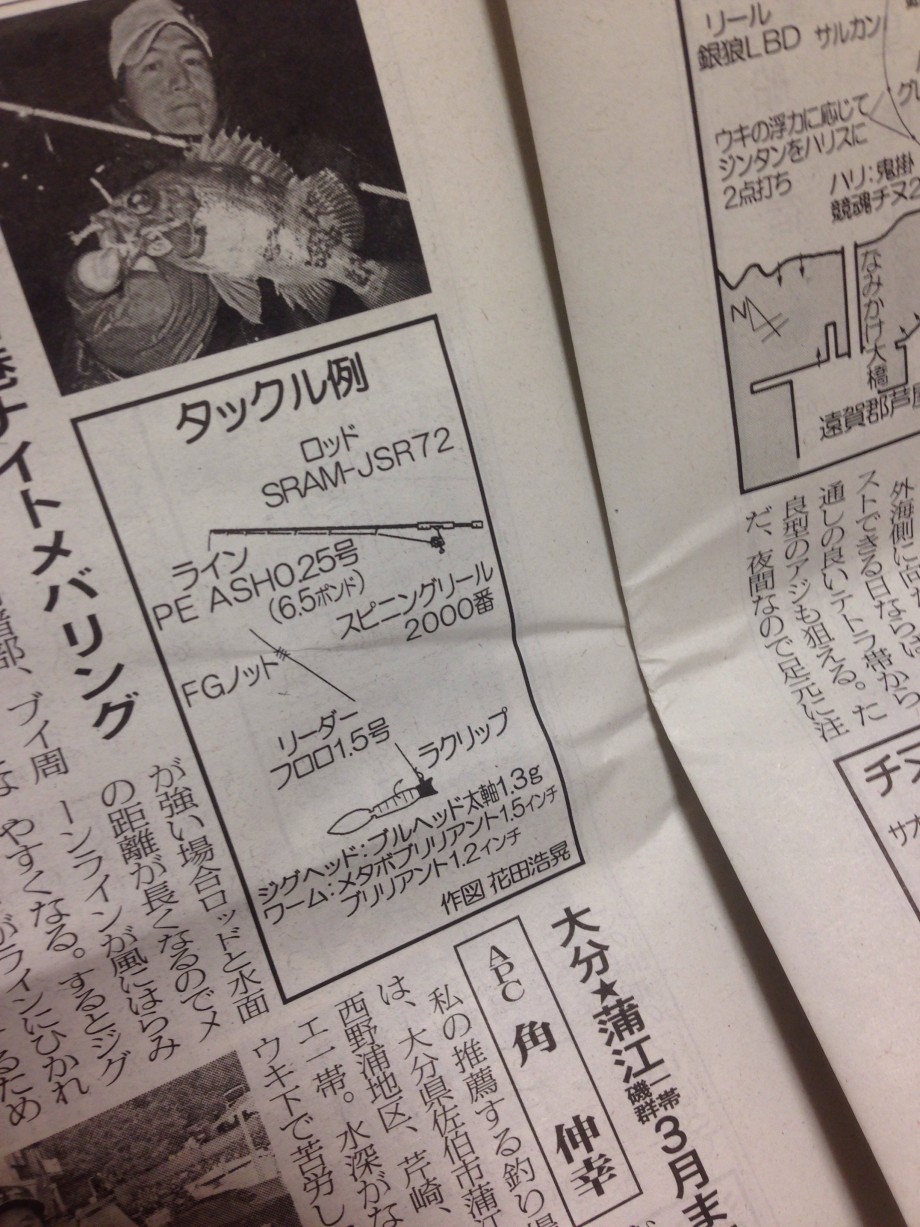 リール
銀狼LBD サルカン
ウキの浮力に応じて
ジンタンをハリスに
2点打ち
ハリ:鬼掛
競魂チヌ2
なみかけ大橋
遠賀郡芦屋
タックル例
ロッド
SRAM-JSR72
ライン
PE ASH0.25号
(6.5ポンド)
スピニングリール
2000番
FGノット
リーダー
フロロ1.5号
ラクリップ
ジグヘッド:ブルヘッド太軸1.3g
ワーム:メタボブリリアント1.5インチ
ブリリアント1.2インチ
作図 花田浩晃
港ナイトメバリング
ブイ周
が強い場合ロッドと水面
の距離が長くなるのでメ
ーンラインが風にはらみ
やすくなる。するとジグ
がラインにひかれ
るため
外海側に向
ストできる日ならば
通しの良いテトラ帯から
良型のアジも狙える。た
だ、夜間なので足元に注
大分★蒲江一帯磯群3月ま
APC 角 仲幸
私の推薦する釣り場
は、大分県佐伯市蒲江
西野浦地区、芹崎、
エ一帯。水深がな
ウキ下で苦労し